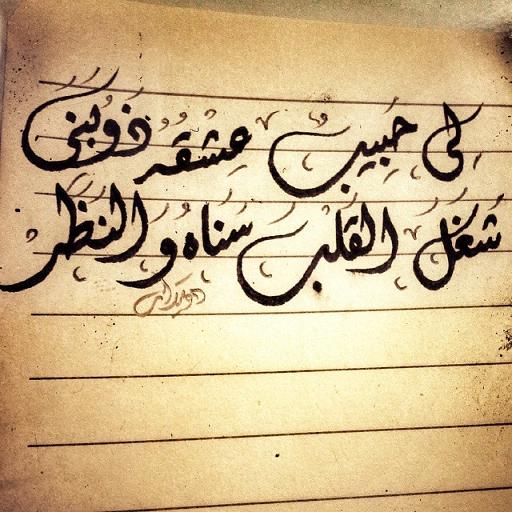 لي حبيب عشقه ذوبني
شغل القلب سناه والنظر